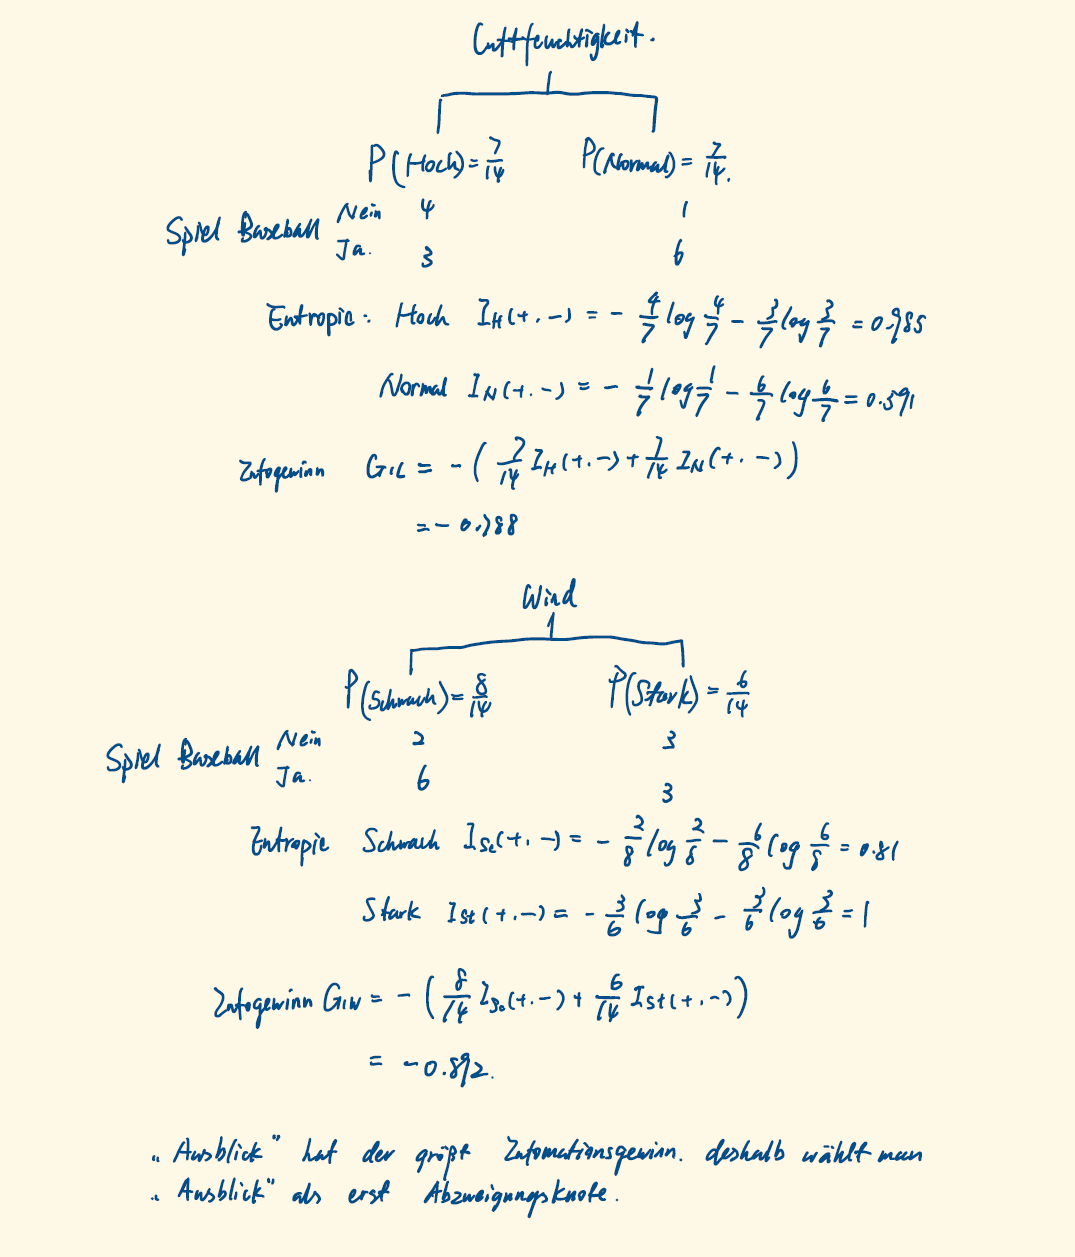 Luftfeuchtigkeit.
P(Hoch)=7/14 P(Normal)=7/14.
Spiel Baseball Nein 4 1
Ja. 3 6
Entropie: Hoch I_H(+.-) = - 4/7 log 4/7 - 3/7 log 3/7 = 0.985
Normal I_N(+.-) = - 1/7 log 1/7 - 6/7 log 6/7 = 0.591
Infogewinn G_iL = - ( 7/14 I_H(+.-) + 7/14 I_N(+.-) )
= - 0.788
Wind
P(Schwach)=8/14 P(Stark) = 6/14
Spiel Baseball Nein 2 3
Ja. 6 3
Entropie Schwach I_Sc(+.-) = - 2/8 log 2/8 - 6/8 log 6/8 = 0.81
Stark I_St(+.-) = - 3/6 log 3/6 - 3/6 log 3/6 = 1
Infogewinn G_iW = - ( 8/14 I_Sc(+.-) + 6/14 I_St(+.-) )
= -0.892.
„Ausblick" hat der größt Infomationsgewinn. deshalb wählt man
„Ausblick" als erst Abzweigungsknote.